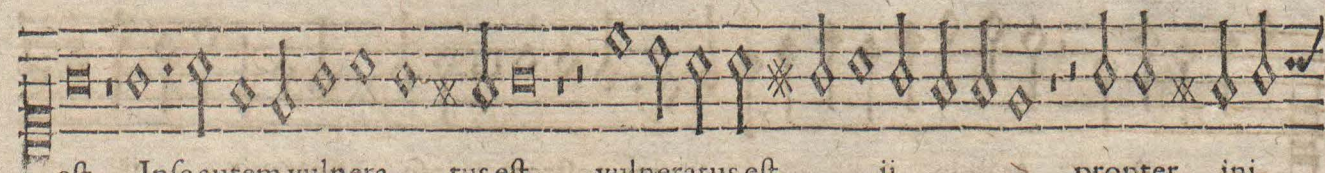 eſt Ipſe autem vulnera tus eſt vulneratus eſt ij propter ini